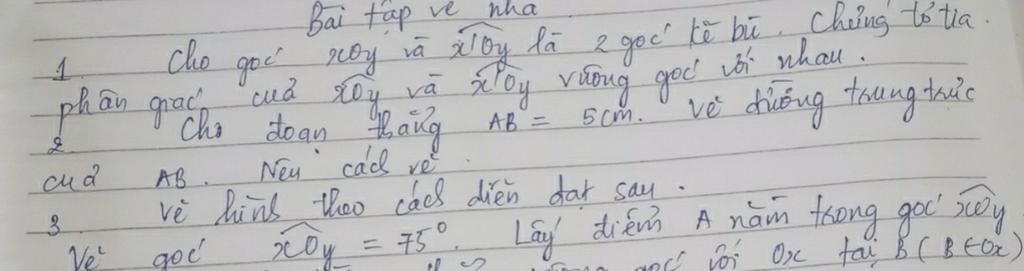 Bài tập về nhà
1 Cho góc xOy và x'Oy là 2 góc kề bù. Chứng tỏ tia
phân giác của xOy và x'Oy vuông góc với nhau.
2 Cho đoạn thẳng AB = 5cm. Vẽ đường trung trực
của AB. Nêu cách vẽ
3 Vẽ hình theo cách diễn đạt sau.
Vẽ góc xOy = 75°. Lấy điểm A nằm trong góc xOy
góc với Ox tại B (B∈Ox)